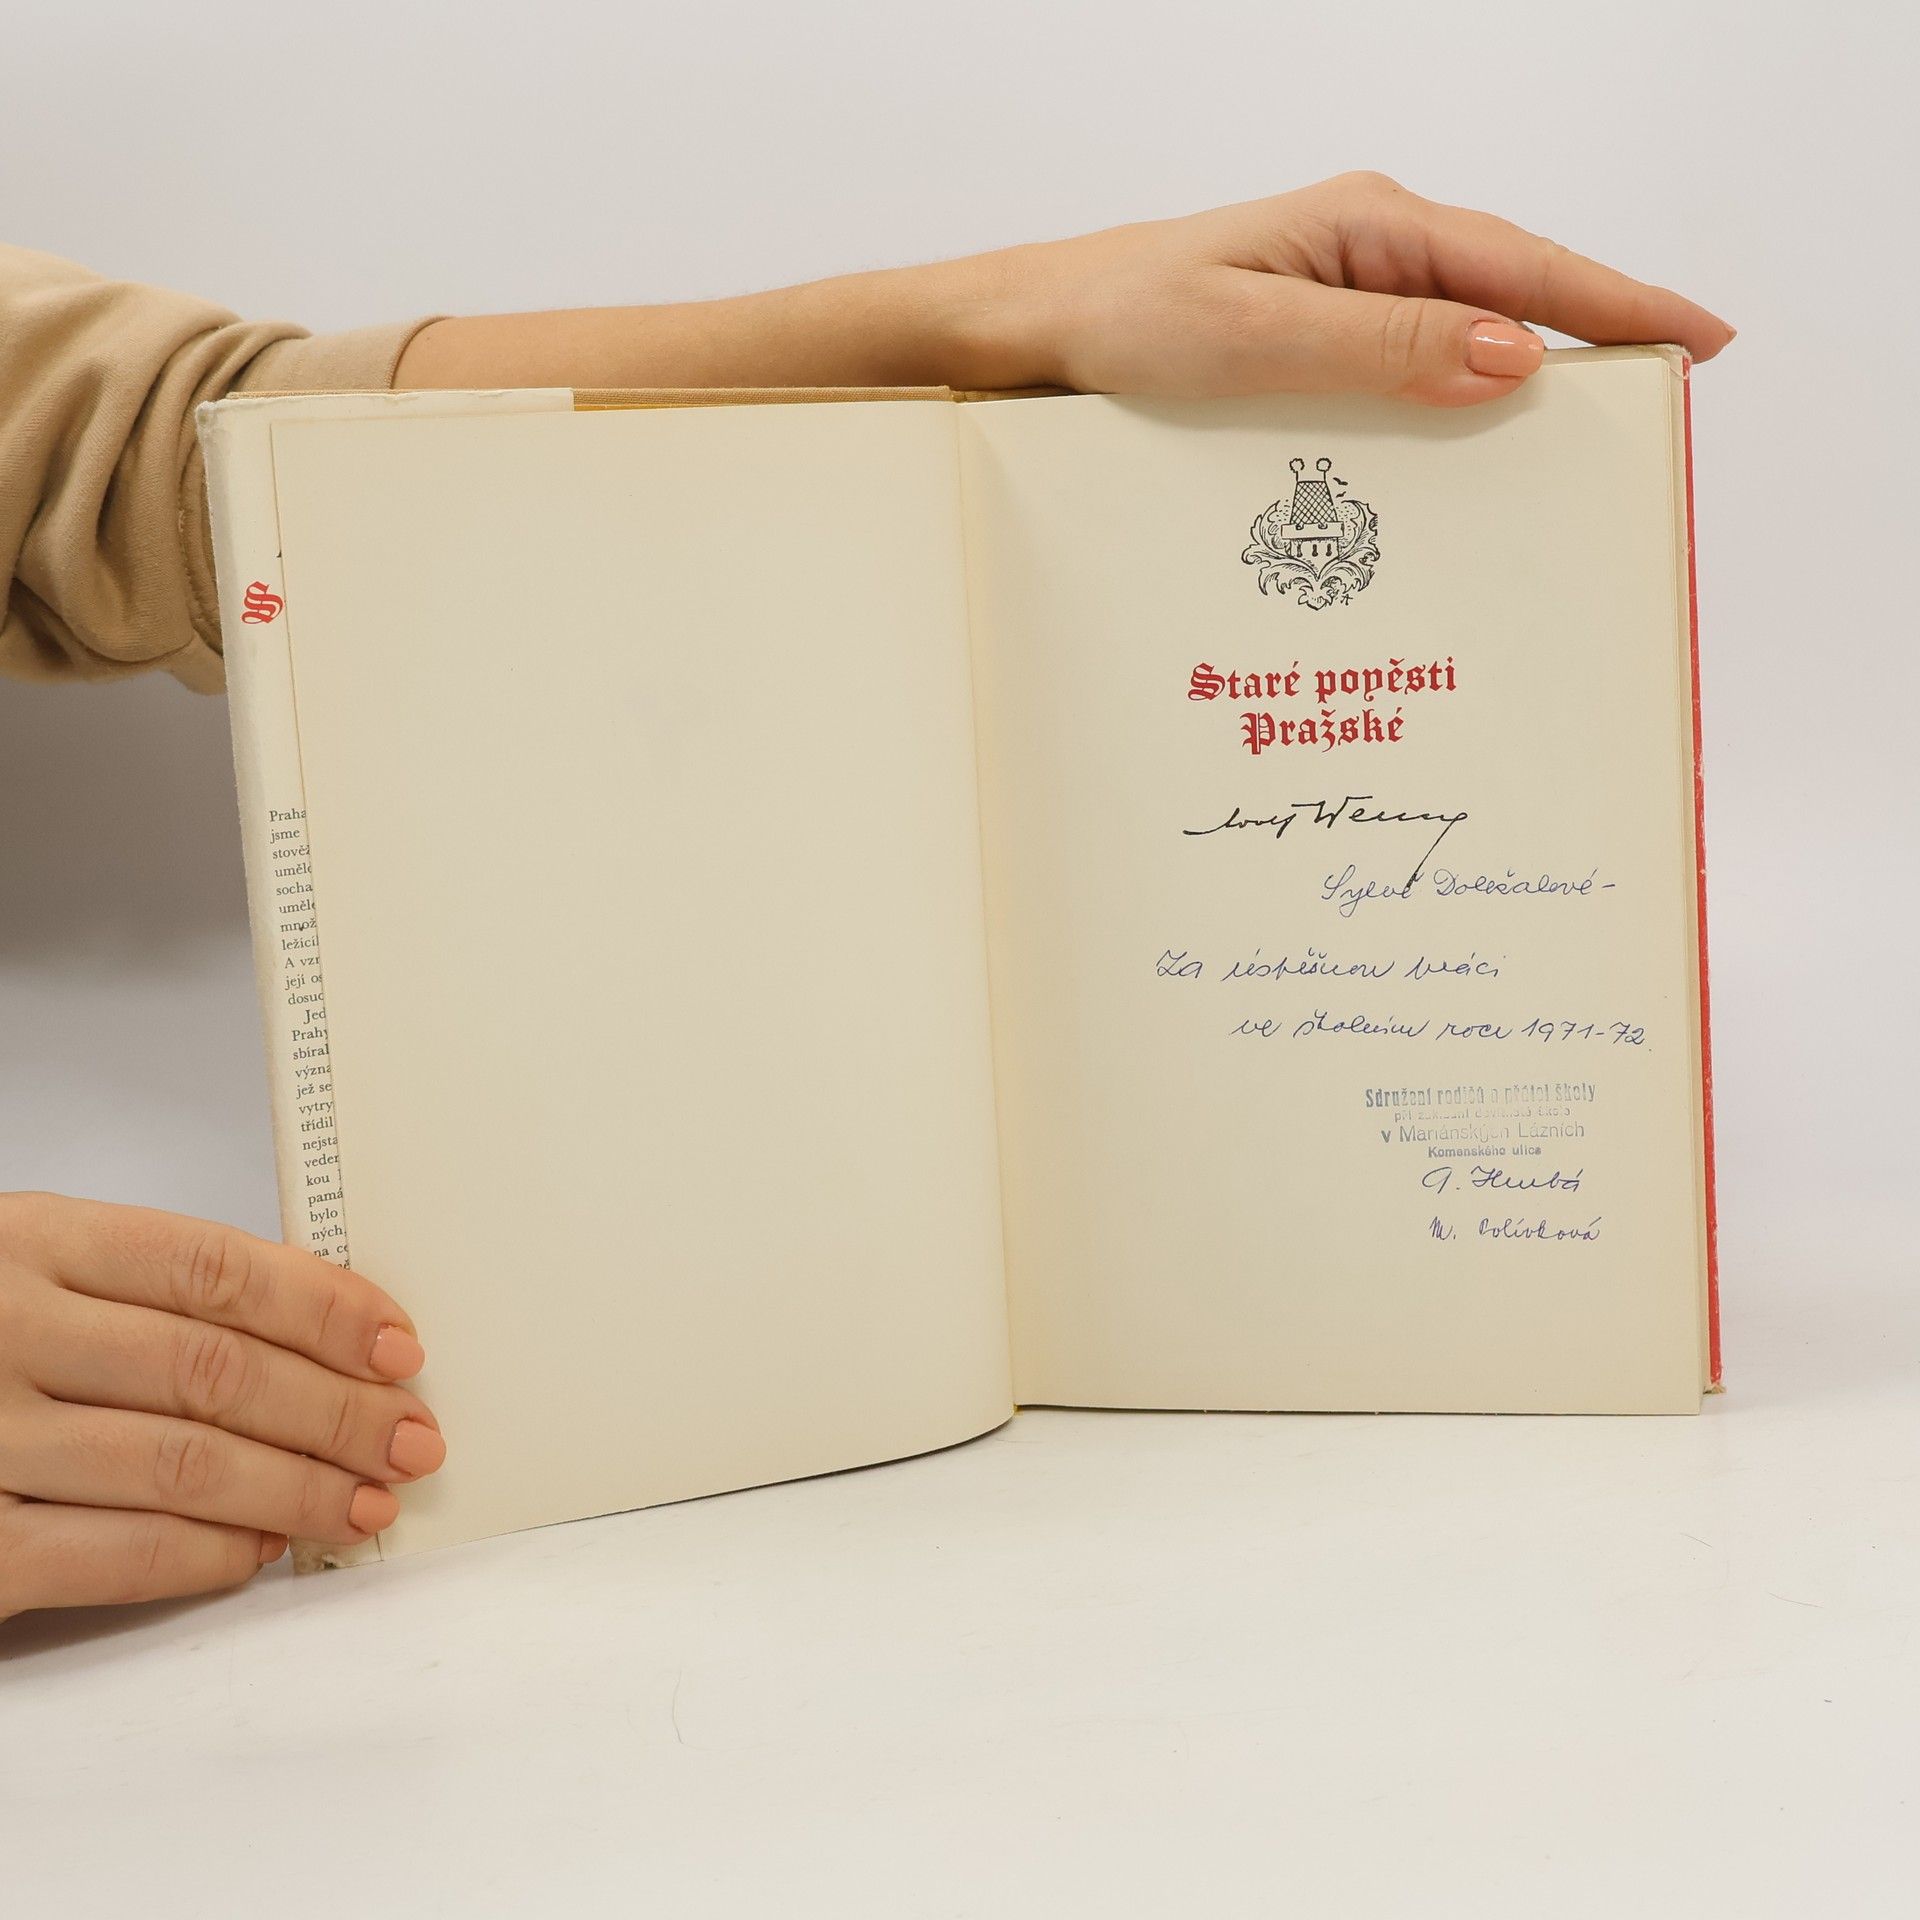 S
Praha
jsme
stověž
uměle
socha
uměle
množ
ležící
A vzr
její os
dosud
Jed
Prahy
sbíral
význa
jež se
vytry
třídil
nejsta
veder
kou
pamá
bylo
ných,
na ce
Staré pověsti
Pražské
Adolf Wenig
Sylvě Doležalové-
Za úspěšnou práci
ve školním roce 1971-72.
Sdružení rodičů a přátel školy
při základní devítileté škole
v Mariánských Lázních
Komenského ulice
A. Hrubá
M. Polívková